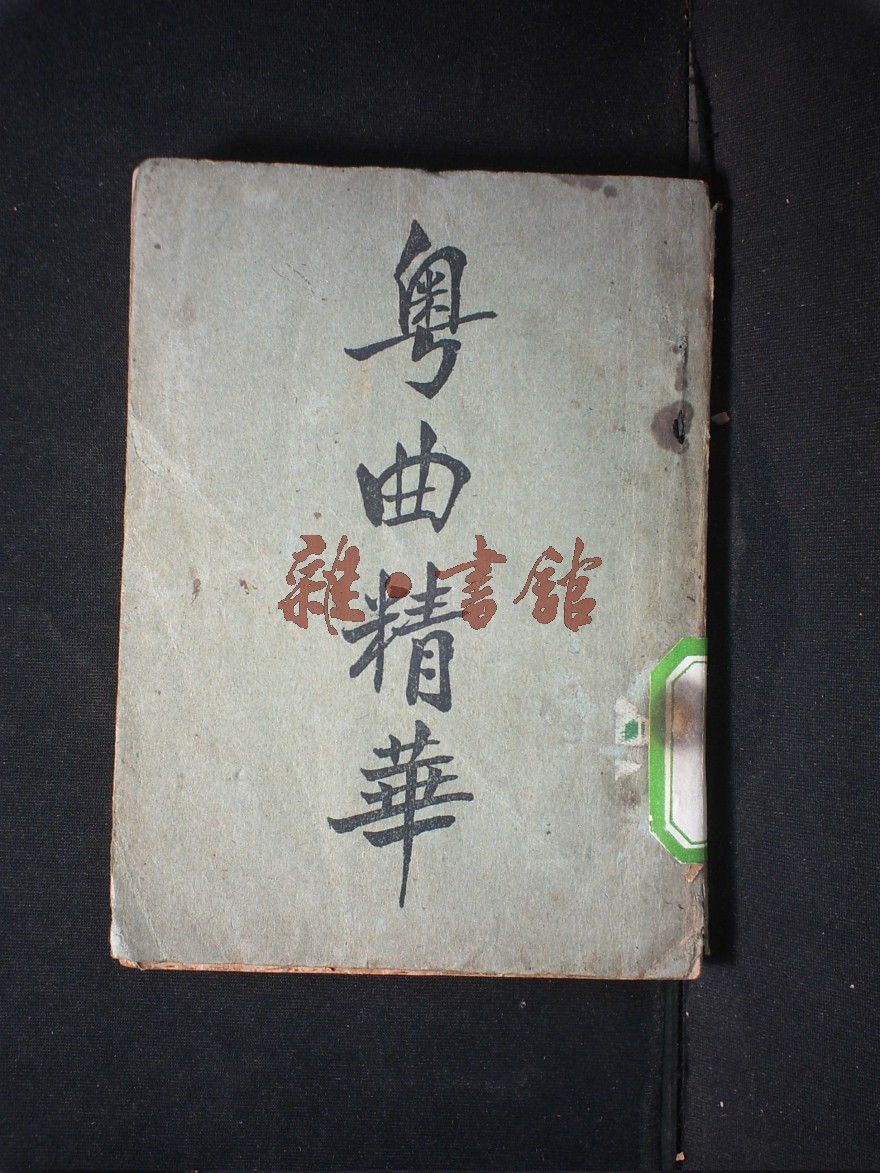 粤曲精華
雜·書館